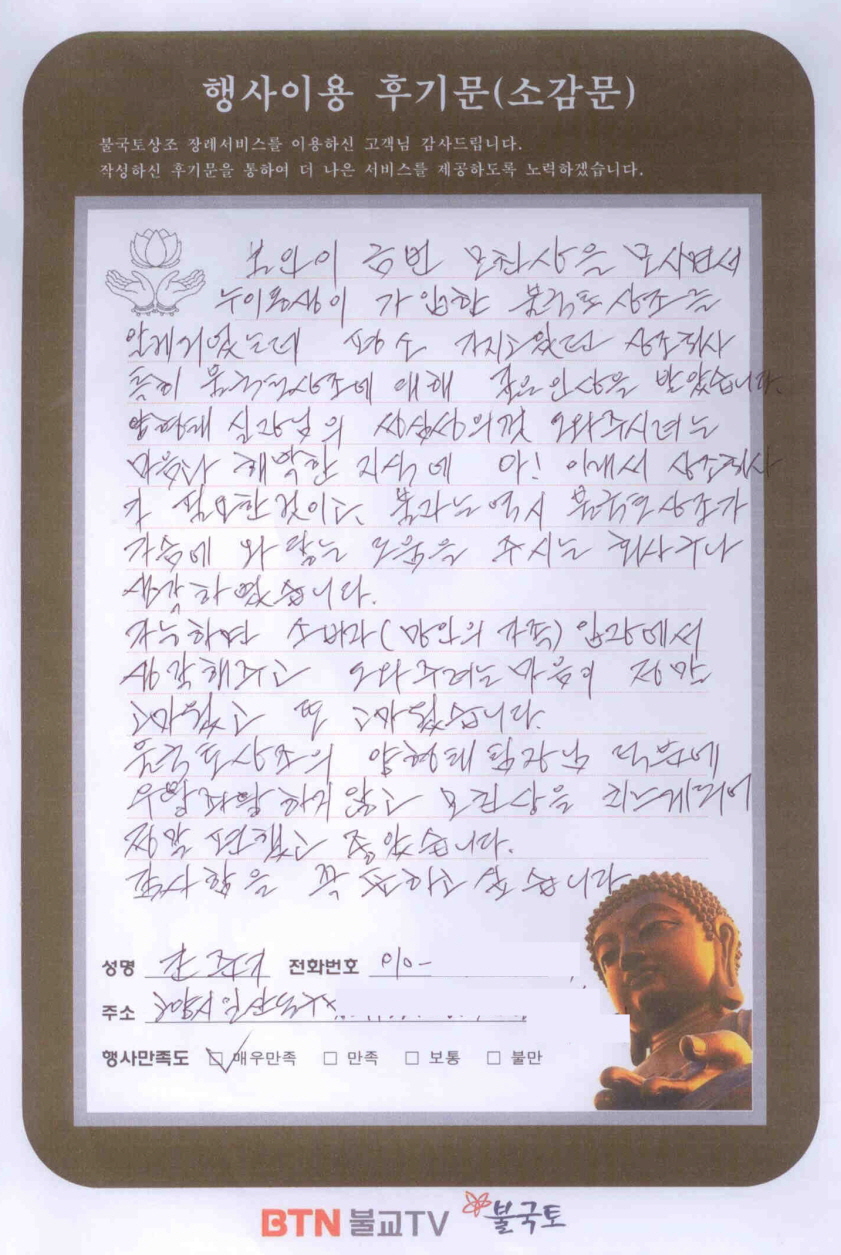 행사이용 후기문(소감문)
불국토상조 장례서비스를 이용하신 고객님 감사드립니다.
작성하신 후기문을 통하여 더 나은 서비스를 제공하도록 노력하겠습니다.
본인이 금번 모친상을 모시면서
누이동생이 가입한 불국토 상조를
알게 되었는데 평소 가지고 있던 상조회사
특히 불국토상조에 대해 깊은 인상을 받았습니다.
양형태 실장님의 성심성의껏 도와주시려는
마음과 해박한 지식에 아! 이래서 상조회사
가 필요한 것이고, 불자는 역시 불국토 상조가
가슴에 와 닿는 도움을 주시는 회사구나
생각하였습니다.
가능하면 소비자(망인의 가족) 입장에서
생각해주고 도와주려는 마음이 정말
고마웠고 또 고마웠습니다.
불국토상조의 양형태 팀장님 덕분에
우왕좌왕 하지 않고 모친상을 치르게 되어
정말 편했고 좋았습니다.
감사함을 꼭 전하고 싶습니다
성명 전화번호 010-
주소 고양시 일산동구
행사만족도 □ 매우만족 □ 만족 □ 보통 □ 불만
BTN 불교TV 불국토